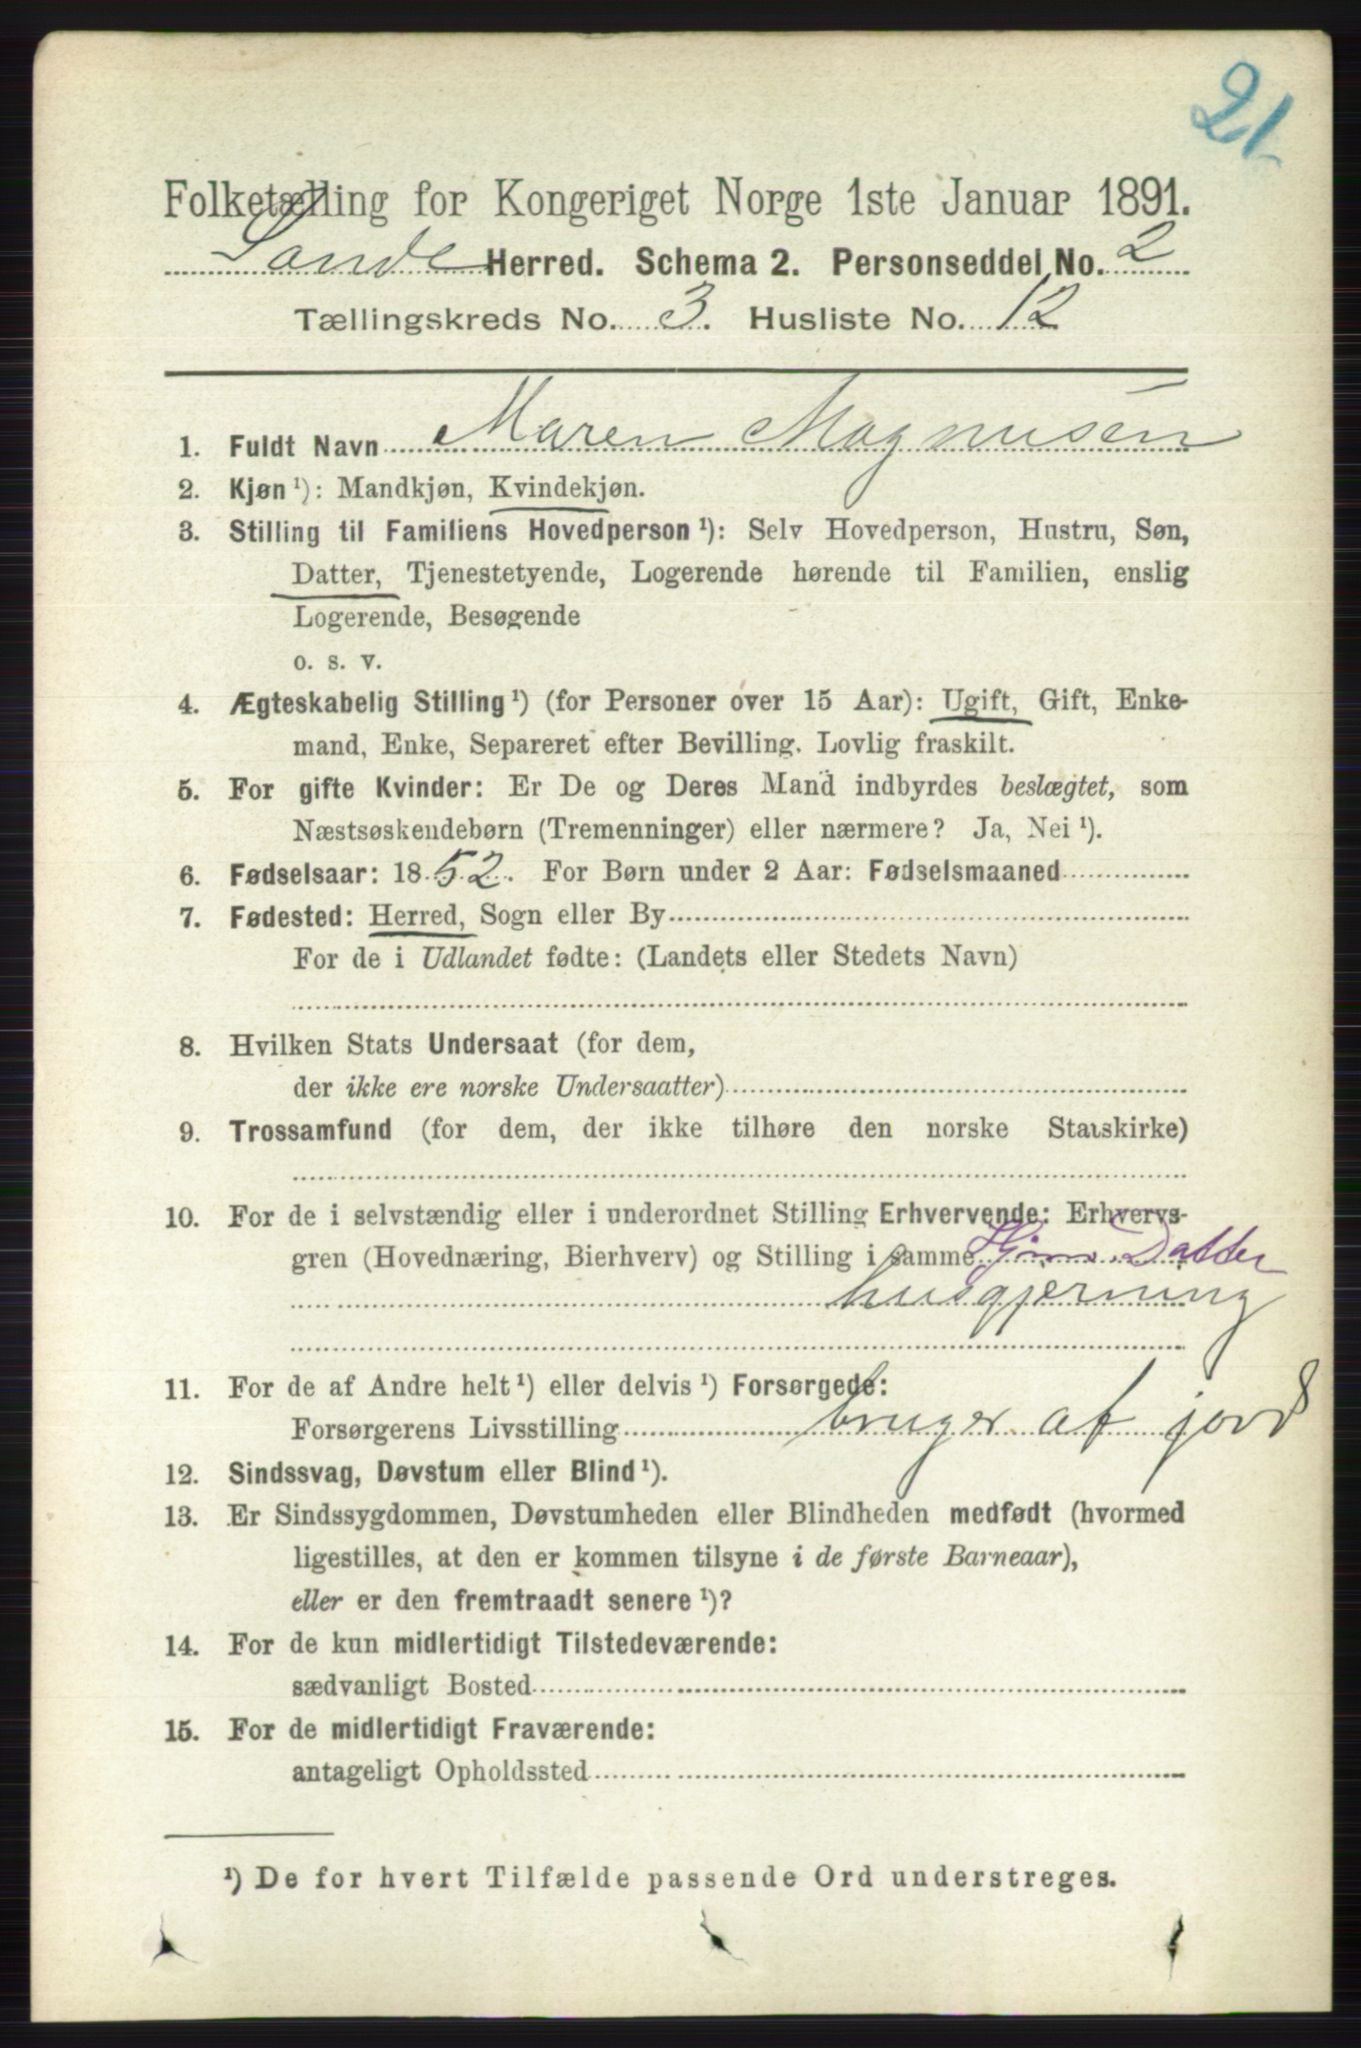 21
Folketælling for Kongeriget Norge 1ste Januar 1891.
Sande Herred. Schema 2. Personseddel No. 2
Tællingskreds No. 3. Husliste No. 12
1. Fuldt Navn Maren Magnusen
2. Kjøn ¹): Mandkjøn, Kvindekjøn.
3. Stilling til Familiens Hovedperson ¹): Selv Hovedperson, Hustru, Søn,
Datter, Tjenestetyende, Logerende hørende til Familien, enslig
Logerende, Besøgende
o. s. v.
4. Ægteskabelig Stilling ¹) (for Personer over 15 Aar): Ugift, Gift, Enke-
mand, Enke, Separeret efter Bevilling. Lovlig fraskilt.
5. For gifte Kvinder: Er De og Deres Mand indbyrdes beslægtet, som
Næstsøskendebørn (Tremenninger) eller nærmere? Ja, Nei ¹).
6. Fødselsaar: 1852. For Børn under 2 Aar: Fødselsmaaned
7. Fødested: Herred, Sogn eller By
For de i Udlandet fødte: (Landets eller Stedets Navn)
8. Hvilken Stats Undersaat (for dem,
der ikke ere norske Undersaatter)
9. Trossamfund (for dem, der ikke tilhøre den norske Statskirke)
10. For de i selvstændig eller i underordnet Stilling Erhvervende: Erhvervs-
gren (Hovednæring, Bierhverv) og Stilling i samme Hjm. Datter
husgjerning
11. For de af Andre helt ¹) eller delvis ¹) Forsørgede:
Forsørgerens Livsstilling bruger af jord
12. Sindssvag, Døvstum eller Blind ¹).
13. Er Sindssygdommen, Døvstumheden eller Blindheden medfødt (hvormed
ligestilles, at den er kommen tilsyne i de første Barneaar),
eller er den fremtraadt senere ¹)?
14. For de kun midlertidigt Tilstedeværende:
sædvanligt Bosted
15. For de midlertidigt Fraværende:
antageligt Opholdssted
¹) De for hvert Tilfælde passende Ord understreges.